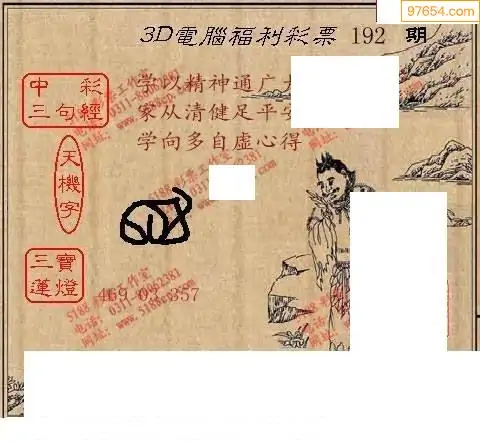 97654.com
3D電腦福利彩票 192 期
中彩
三句經
学以精神通广
家从清健足平安
学向多自虚心得
天機字
三寶
蓮燈
469 357
5188彩票工作室